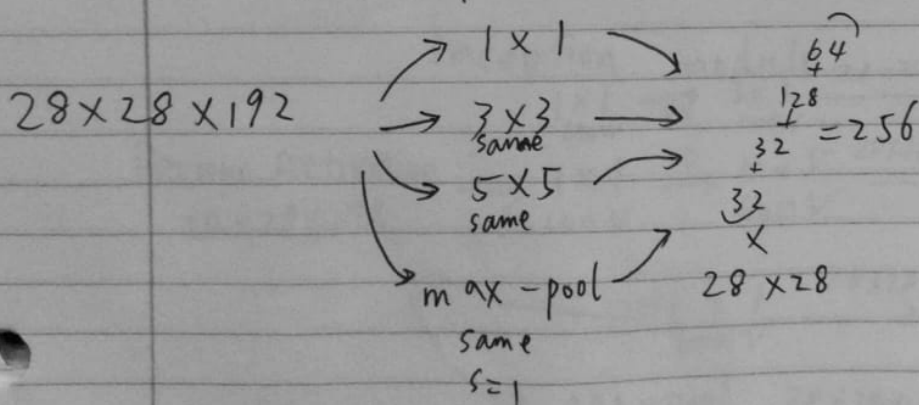 28×28×192
1×1
3×3
same
5×5
same
max-pool
same
s=1
64
+
128
+
32
+
32
=256
×
28×28